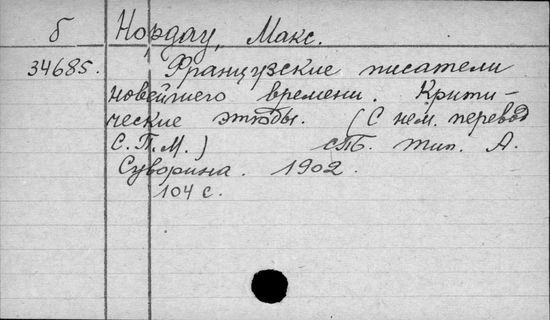 б Нордау, Макс.
34685. Французские писатели
новейшего времени. Крити-
ческие этюды. (С нем. перевод
С.П.М.) СПб. тип. А.
Суворина. 1902.
104 с.